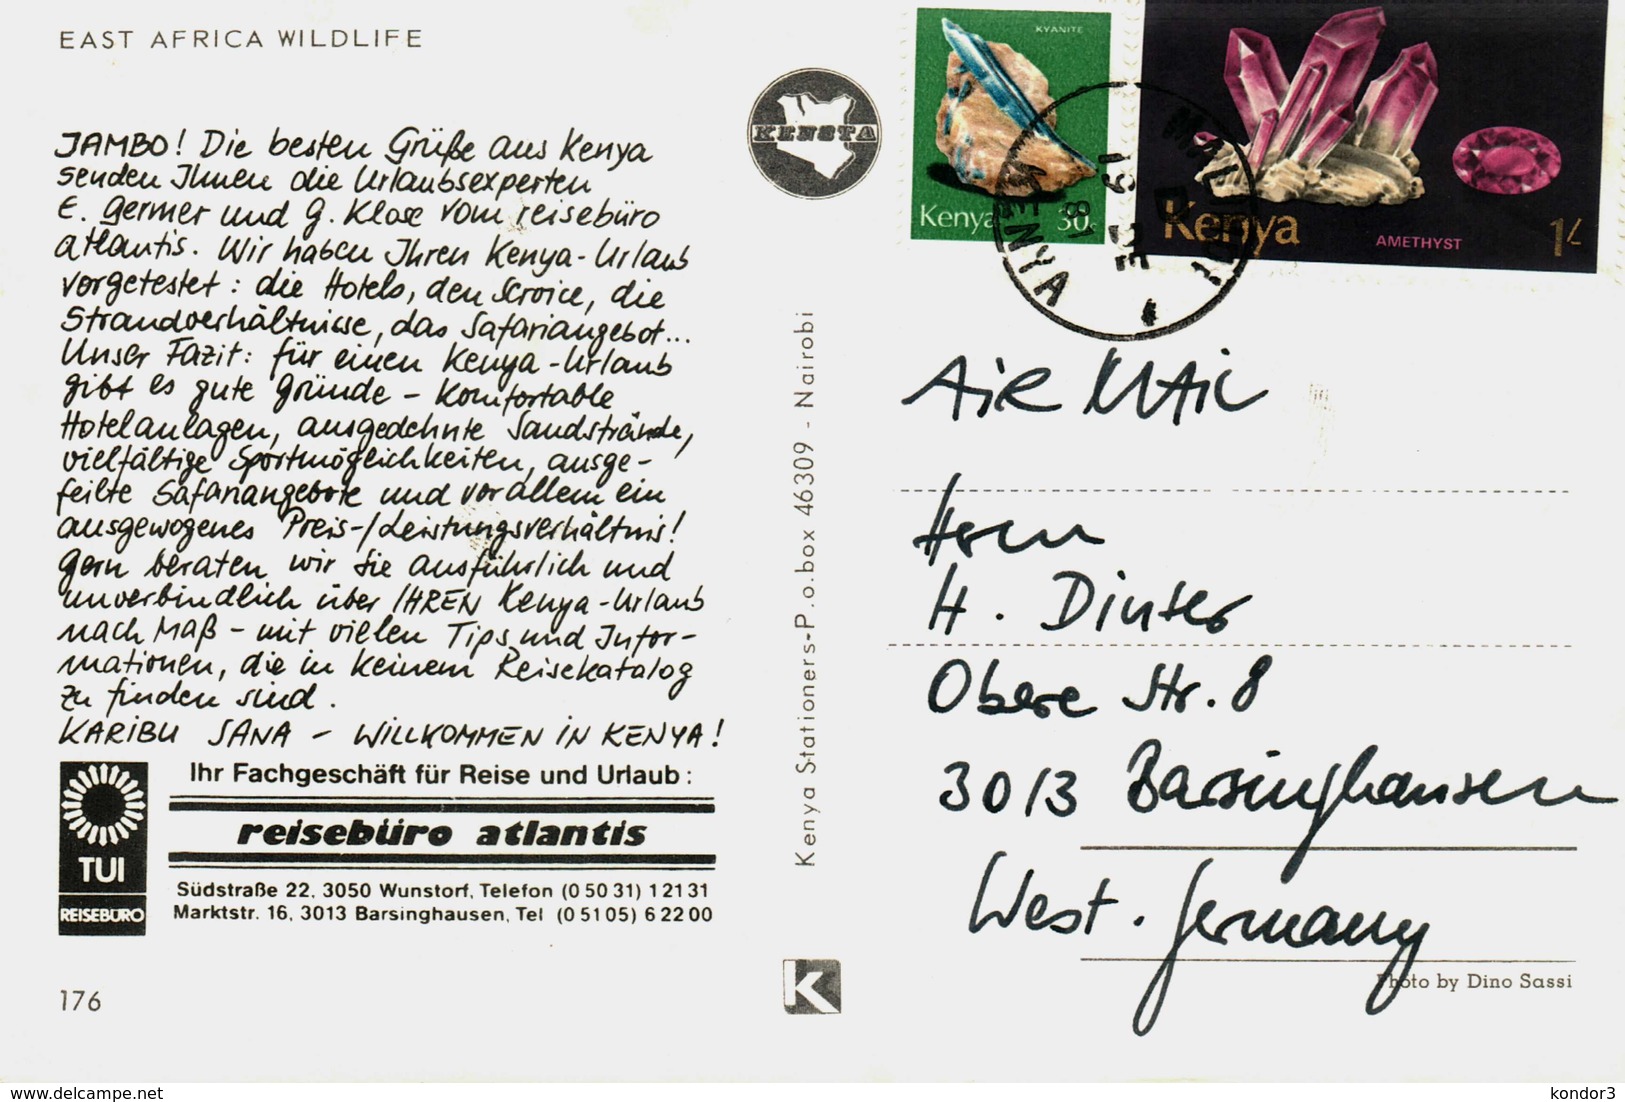 EAST AFRICA WILDLIFE
JAMBO! Die besten Grüße aus Kenya
senden Ihnen die Urlaubsexperten
E. Germer und G. Klose vom reisebüro
atlantis. Wir haben Ihren Kenya-Urlaub
vorgetestet: die Hotels, den Service, die
Strandverhältnisse, das Safariangebot...
Unser Fazit: für einen Kenya-Urlaub
gibt es gute Gründe - Komfortable
Hotelanlagen, ausgedehnte Sandstrände,
vielfältige Sportmöglichkeiten, ausge-
feilte Safariangebote und vor allem ein
ausgewogenes Preis-/Leistungsverhältnis!
Gern beraten wir Sie ausführlich und
unverbindlich über IHREN Kenya-Urlaub
nach Maß - mit vielen Tips und Infor-
mationen, die in keinem Reisekatalog
zu finden sind.
KARIBU SANA - WILLKOMMEN IN KENYA!
TUI
REISEBÜRO
Ihr Fachgeschäft für Reise und Urlaub:
reisebüro atlantis
Südstraße 22, 3050 Wunstorf, Telefon (0 50 31) 1 21 31
Marktstr. 16, 3013 Barsinghausen, Tel (0 51 05) 6 22 00
176
KENSTA
Kenya Stationers-P.o.box 46309 - Nairobi
K
KYANITE
Kenya 30c
Kenya
AMETHYST
1/-
MALINDI
19 DE 81
KENYA
AiR MAiL
Herrn
H. Dinter
Obere Str. 8
3013 Barsinghausen
West. Germany
Photo by Dino Sassi
delcampe.net
kondor3